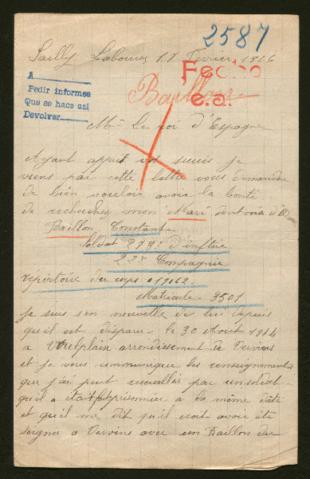 2587
Sailly Labourse 18 Février 1916
Fecho
e.a.
A
Pedir informes
Que se hace así
Devolver
Baillon
Mr le roi d'Espagne
Ayant appris vos soucis je
viens par cette lettre vous demander
de bien vouloir avoir la bonté
de rechercher mon Mari
Baillon Constant
Soldat d'inftrie
22e Compagnie
repertoire du corps
Matricule 9501
je suis sans nouvelle de lui depuis
qu'il est disparu le 30 Août 1914
a arrondissement de Vervins
et je vous communique les renseignements
que j'ai peut recueilles par un soldat
qui a était prisonnier a la même date
et qui me dit qu'il croit avoir été
soigné a Vervins avec un Baillon du